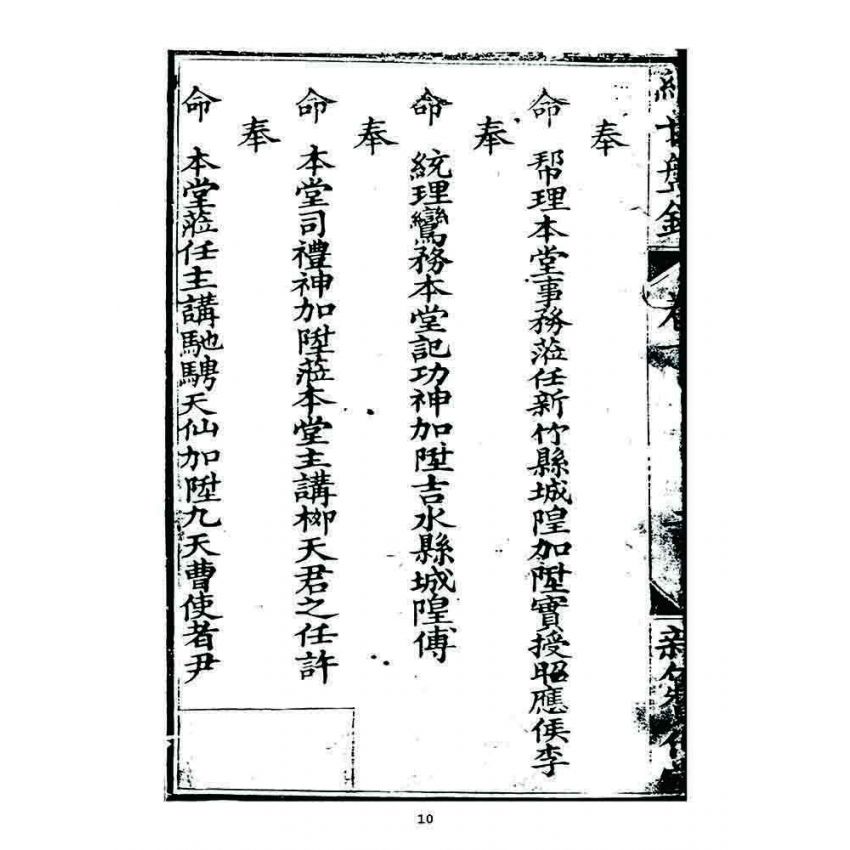 奉
命 帮理本堂事務蒞任新竹縣城隍加陞實授昭應侯李
奉
命 統理鸞務本堂記功神加陞吉水縣城隍傅
奉
命 本堂司禮神加陞蒞本堂主講柳天君之任許
奉
命 本堂蒞任主講馳騁天仙加陞九天曹使者尹
10